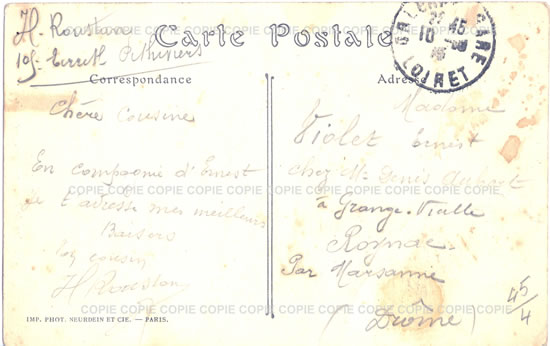 H. Roustan
Carte Postale
Correspondance
Adresse
GARE
LOIRET
10 - 8
15
Chère Cousine
En compagnie d'Ernest
je t'adresse mes meilleurs
Baisers
ton cousin
H Roustan
Madame
Violet Ernest
chez Mr Denis
à Grange-Vieille
Roynac
Par Marsanne
(Drôme)
45/4
COPIE COPIE COPIE COPIE COPIE COPIE COPIE COPIE COPIE COPIE
COPIE COPIE COPIE COPIE COPIE COPIE COPIE COPIE COPIE COPIE
COPIE COPIE COPIE COPIE COPIE COPIE COPIE COPIE COPIE COPIE
IMP. PHOT. NEURDEIN ET CIE. — PARIS.